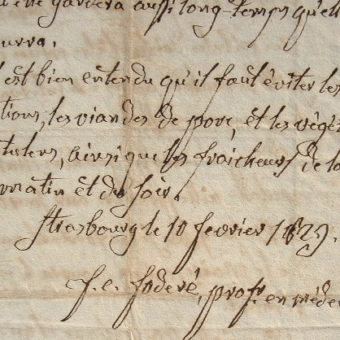 gardera aussi long-temps qu'ell
ourra.
l est bien entendu qu'il faut éviter les
tions, les viandes de porc, et les végé
ainsi que les fraicheurs de la
matin et du soir.
Strasbourg le 10 fevrier 1829.
f. e. foderé, profr. en méde